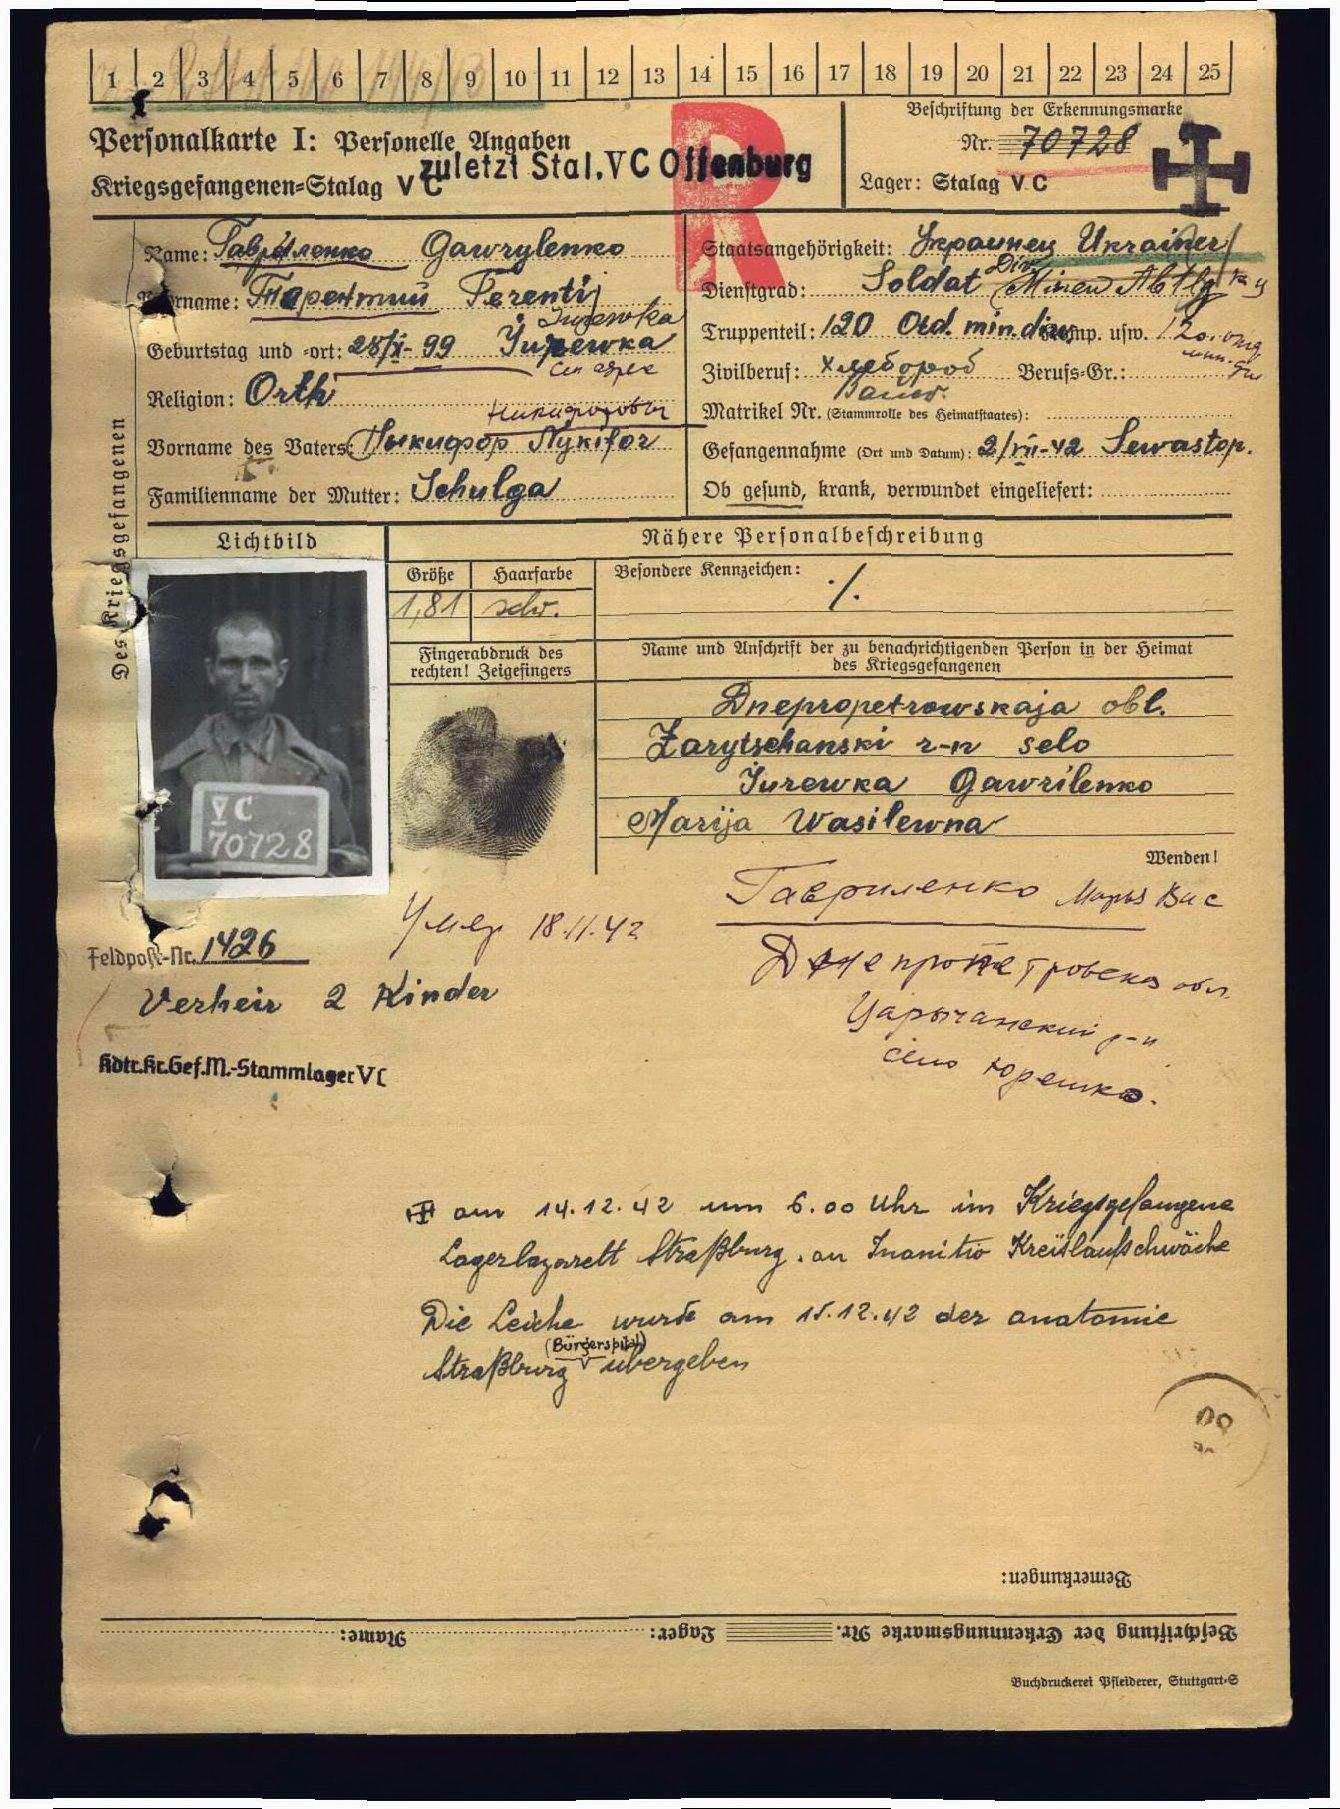 1 2 3 4 5 6 7 8 9 10 11 12 13 14 15 16 17 18 19 20 21 22 23 24 25
Personalkarte I: Personelle Angaben
Kriegsgefangenen=Stalag V C
zuletzt Stal. V C Offenburg
R
Beschriftung der Erkennungsmarke
Nr. 70728
Lager: Stalag V C
Des Kriegsgefangenen
Name: Гавриленко Gawrylenko
Vorname: Терентий Terentij
Jurewka
Geburtstag und =ort: 28/X- 99 Jurewka
Religion: Orth
Vorname des Vaters: Ныкифор Nykifor
Familienname der Mutter: Schulga
Staatsangehörigkeit: Украинец Ukrainer
Dienstgrad: Soldat Minen Abtlg
Truppenteil: 120 Otd. min. diw. Komp. usw.
Zivilberuf: Хлебороб Berufs=Gr.:
Matrikel Nr. (Stammrolle des Heimatstaates):
Gefangennahme (Ort und Datum): 2/VII-42 Sewastop.
Ob gesund, krank, verwundet eingeliefert:
Lichtbild
Nähere Personalbeschreibung
Größe Haarfarbe
1,81 schw.
Besondere Kennzeichen: ./.
Fingerabdruck des
rechten! Zeigefingers
Name und Anschrift der zu benachrichtigenden Person in der Heimat
des Kriegsgefangenen
Dnepropetrowskaja obl.
Zarytschanski r-n selo
Jurewka Gawrilenko
Marija Wasilewna
Wenden!
V C
70728
Гавриленко Марья Вас
Днепропетровска обл.
Царычанский р-н
село Юрешка.
Умер 18.11.42
Feldpost-Nr. 1426
Verheir 2 Kinder
Kdtr.Kr.Gef.M.-Stammlager V C
am 14.12.42 um 6.00 Uhr im Kriegsgefangene
Lagerlazarett Straßburg. an Inanitio Kreislaufschwäche
Die Leiche wurde am 15.12.42 der anatomie
(Bürgerspital)
Straßburg übergeben
Bemerkungen:
Beschriftung der Erkennungsmarke Nr. Lager: Name:
Buchdruckerei Pfleiderer, Stuttgart=S